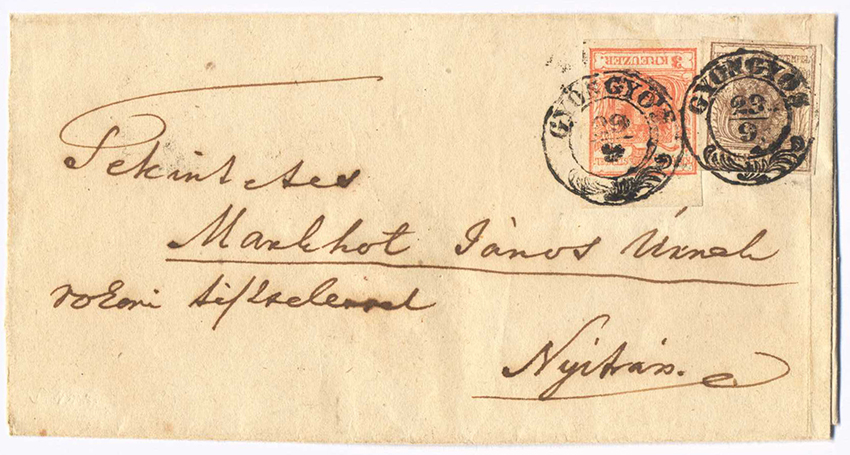 3 KREUZER
GYÖNGYÖS
GYÖNGYÖS
23
9
Tekintetes
Markhot János Úrnak
rokoni tisztelettel
Nyitrán.